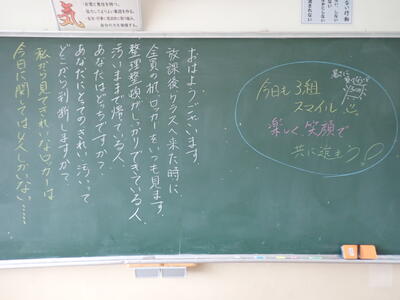 おはようございます。
放課後、クラスへ来た時に
全員の机、ロッカーをいつも見ます。
整理整頓がしっかりできている人、
汚いままで帰っている人、
あなたはどっちですか？
あなたにとってのきれい、汚いって
どこから判断しますか？
私から見てきれいなロッカーは
今日に関しては 人しかいない……
今日も3組
スマイル
楽しく笑顔で
共に進もう!